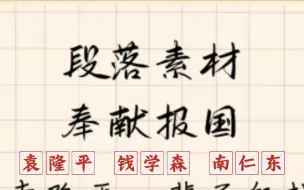 段落素材
奉献报国
袁隆平 钱学森 南仁东